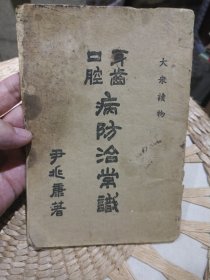 大衆讀物
牙齒
口腔
病防治常識
尹兆熏著